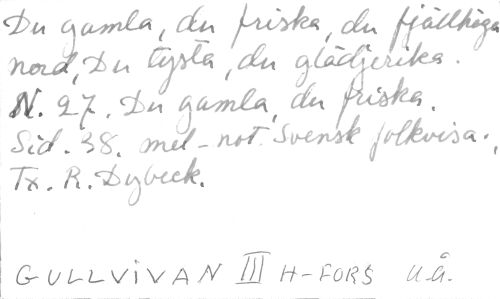 Du gamla, du friska, du fjällhöga
nord, Du tysta, du glädjerika.
N. 27. Du gamla, du friska.
Sid. 38. mel-not. Svensk folkvisa.,
Tx. R. Dybeck.
GULLVIVAN III H-FORS u.å.